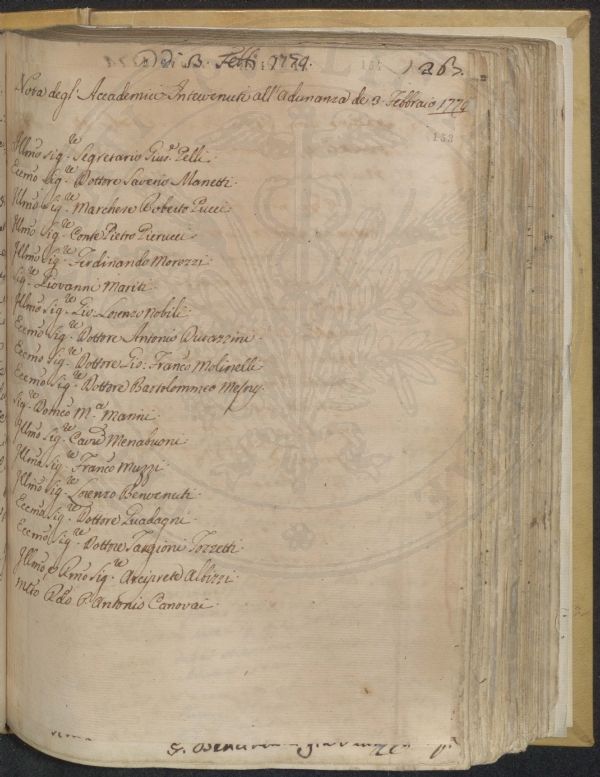 di 3. Febb: 1779. 263.
Nota degl'Accademici Intervenuti all'Adunanza de 3. Febbraio 1779
153
Illmo Sig.re Segretario Gius.e Pelli.
Eccmo Sig.re Dottore Saverio Manetti.
Illmo Sig.re Marchese Roberto Pucci.
Illmo Sig.re Conte Pietro Pierucci.
Illmo Sig.re Ferdinando Morozzi.
Sig.re Giovanni Mariti.
Illmo Sig.re Gio. Lorenzo Nobili.
Eccmo Sig.re Dottore Antonio Durazzini.
Eccmo Sig.re Dottore Gio: Franco Molinelli
Eccmo Sig.re Dottore Bartolommeo Mesny.
Sig.re Domco M.a Manni.
Illmo Sig.re Cavre Menabuoni.
Illmo Sig.re Franco Muzzi.
Illmo Sig.re Lorenzo Benvenuti.
Eccmo Sig.re Dottore Guadagni.
Eccmo Sig.re Dottore Targioni Tozzetti.
Illmo, e Rmo Sig.re Arciprete Albizzi.
Rdo P. Antonio Canovai.